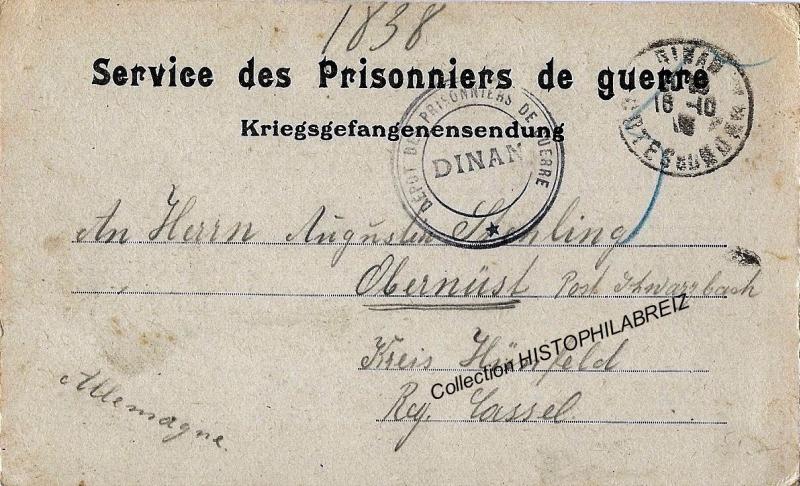 1838
Service des Prisonniers de guerre
Kriegsgefangenensendung
DÉPOT DES PRISONNIERS DE GUERRE
DINAN
DINAN
16 -10
COTES DU NORD
An Herrn Augustin Stehling
Obernüst Post Schwarzbach
Kreis Hünfeld
Rg. Cassel
Allemagne.
Collection HISTOPHILABREIZ